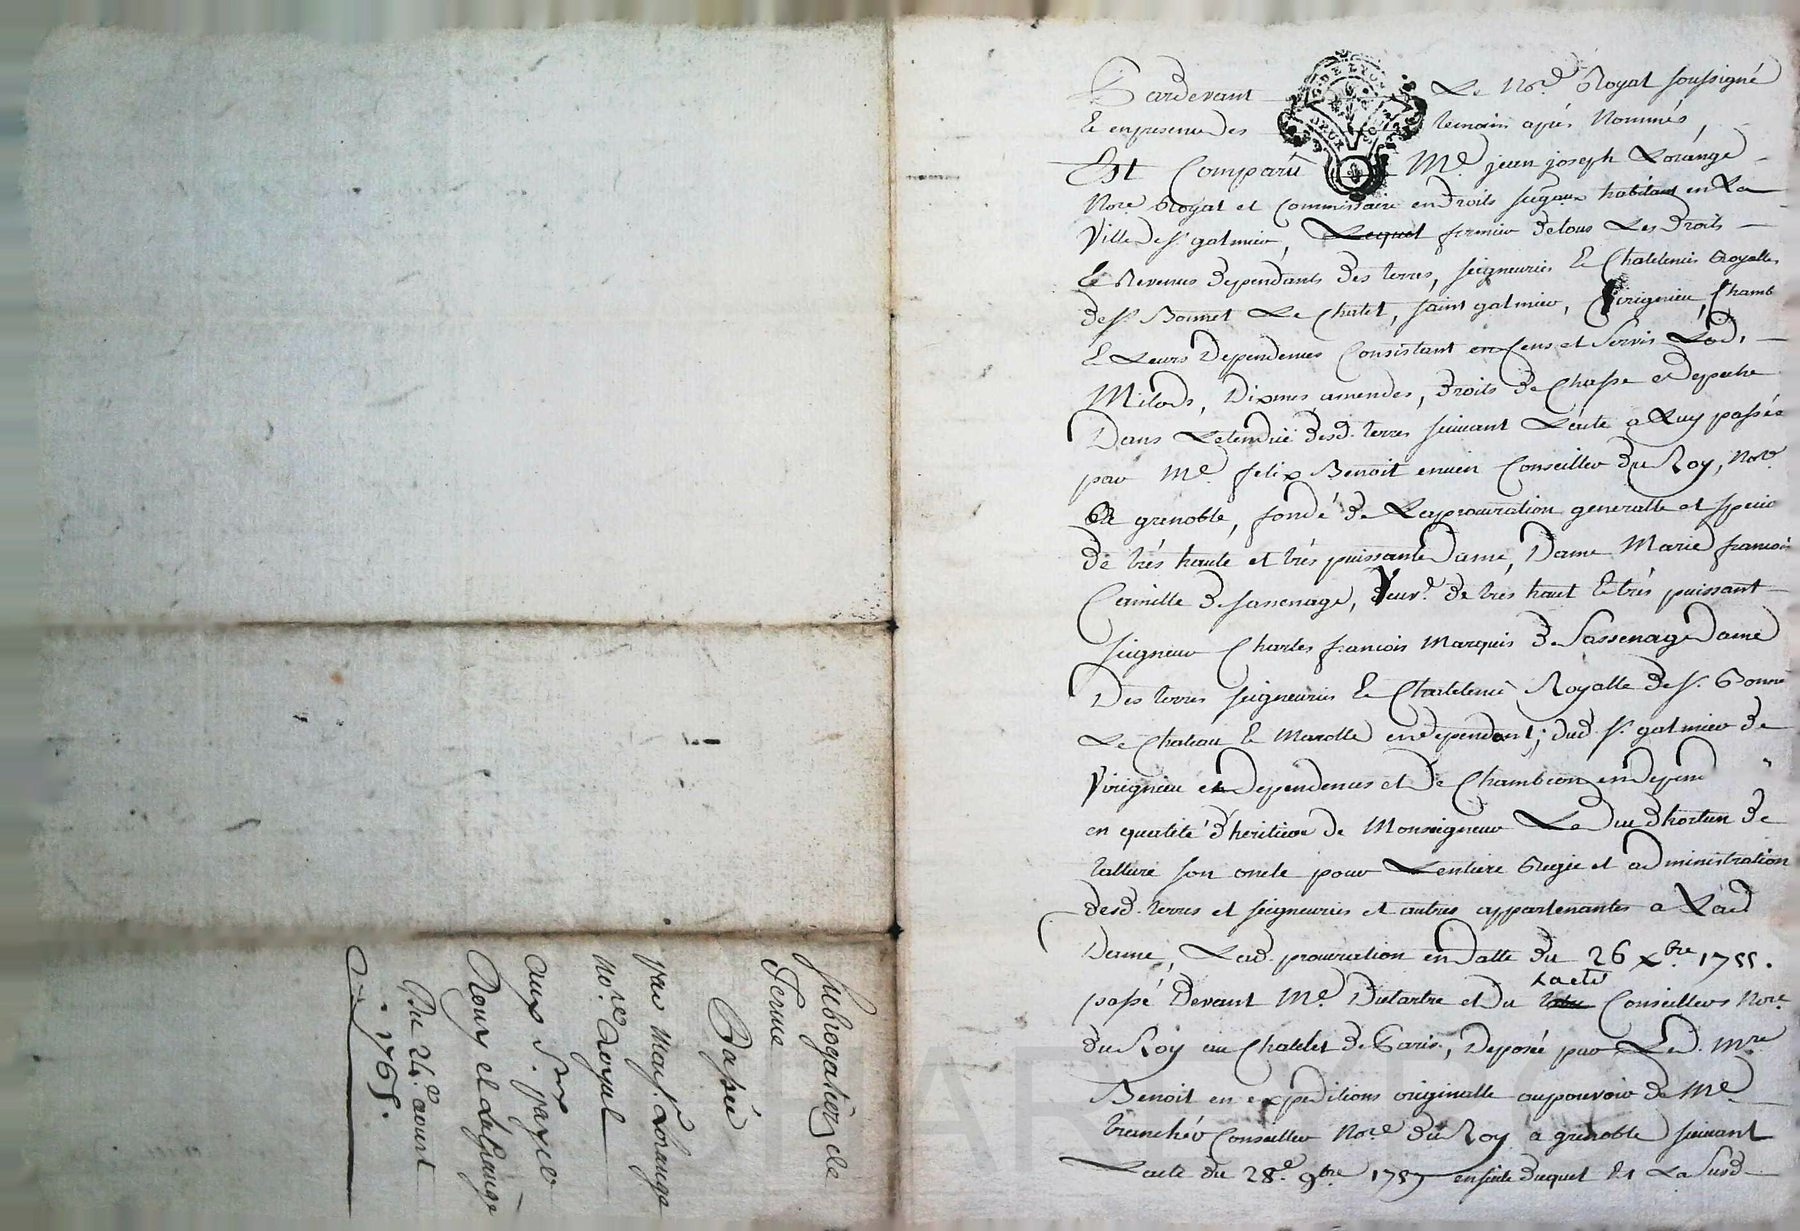 Pardevant Le Nore. Royal soussigné
Et en presence des temoins aprés Nommés,
Est Comparu Me. jean joseph Lorange
Nore. Royal et Commissaire en droits seigaux habitant en La
Ville de st. galmier, Lequel fermier de tous Les Droits
Et Revenus dependants des terres, seigneuries Et Chatelenies Royalles
de st. Bonnet Le Chatel, saint galmier, Virignieu, Chamb
Et Leurs Dependences Consistant en Cens et servis Lods,
Milods, Dixmes amendes, droits de Chasse et de peche
Dans Letenduë desd. terres suivant Lacte a Luy passée
par Me. felix Benoit encien Conseiller du Roy, Nore.
de grenoble, fondé de La procuration generalle et speci
de trés haute et trés puissante Dame, Dame Marie francois
Camille de sassenage, Veuve. de trés haut Et trés puissant
seigneur Charles francois Marquis de Sassenage Dame
Des terres seigneuries Et Chatelenie Royalle de st. Bonne
Le Chateau Et Marolle en dependant; dud. st. galmier de
Virignieu et Dependences et De Chambeon en depend
en qualité d'heritiere de Monseigneur Le Duc dhostun de
tallard son oncle pour Lentiere Regie et administration
desd. terres et seigneuries et autres appartenantes a Lad
Dame, Lad. procuration en Datte du 26 xbre. 1755.
passé Devant Me. Dutartre et Du Lacte Conseillers Nore.
du Roy au Chatelet de Paris, Deposée par Led. Mre
Benoit en expeditions originalle au pouvoir de Me
tranchér Conseiller Nore. du Roy a grenoble suivant
Lacte du 28e. 9bre 1757 ensuite duquel Est La Susd
Subrogation de
Ferme
Passée
par Mons. Lorange
nore. Royal
aux Srs. payre
Roux et Lagrange
Du 24e. aoust
1765.